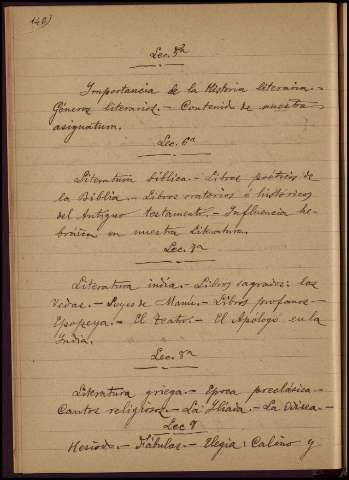 148)
Lec. 5ª
Importancia de la Historia literaria.-
Géneros literarios.- Contenido de nuestra
asignatura.
Lec. 6ª
Literatura bíblica.- Libros poéticos de
la Biblia.- Libros oratorios é históricos
del Antiguo testamento.- Influencia he-
bráica en nuestra Literatura.
Lec. 7ª
Literatura india.- Libros sagrados: los
Vedas.- Leyes de Manú.- Libros profanos-
Epopeya.- El Teatro.- El Apólogo en la
India.
Lec. 8ª
Literatura griega.- Epoca preclásica.-
Cantos religiosos.- La Iliada.- La Odisea.-
Lec 9
Hesiodo.- Fábulas.- Elegia: Calino y